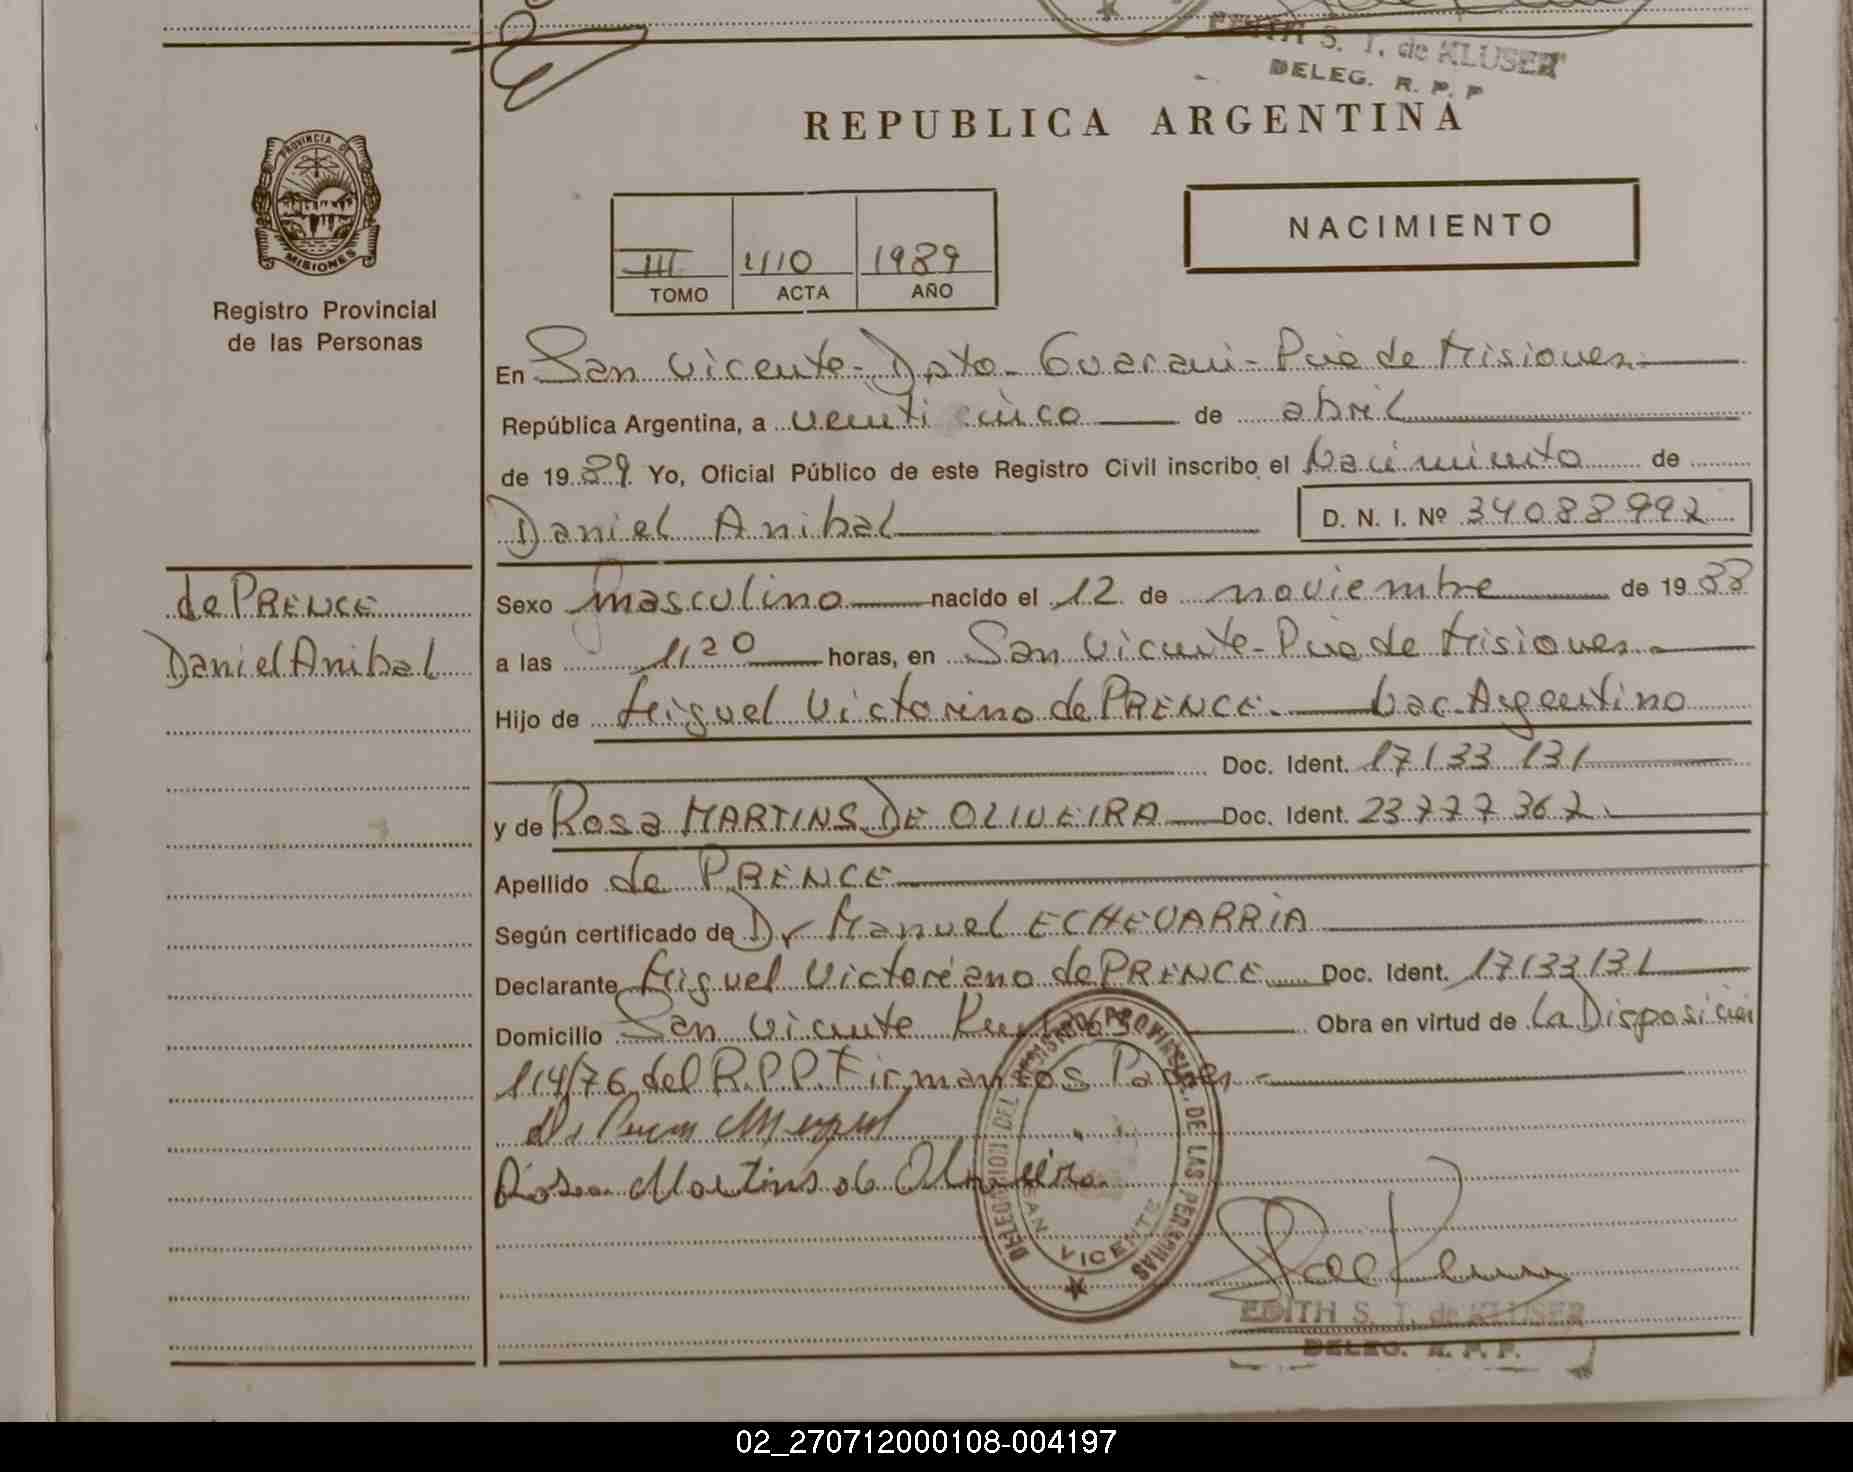 EDITH S. T. de KLUSER
DELEG. R. P. P
REPUBLICA ARGENTINA
PROVINCIA DE
MISIONES
Registro Provincial
de las Personas
NACIMIENTO
III 410 1989
TOMO ACTA AÑO
En San Vicente - Dpto - Guarani - Pcia de Misiones
República Argentina, a veinti cinco de abril
de 1989 Yo, Oficial Público de este Registro Civil inscribo el Nacimiento de
Daniel Anibal D. N. I. Nº 34088992
de PRENCE
Daniel Anibal
Sexo masculino nacido el 12 de noviembre de 1988
a las 11 20 horas, en San Vicente - Pcia de Misiones
Hijo de Miguel Victorino de PRENCE - Nac. Argentino
Doc. Ident. 17133 131
y de Rosa MARTINS DE OLIVEIRA Doc. Ident. 23777367
Apellido de PRENCE
Según certificado de Dr Manuel ECHEVARRIA
Declarante Miguel Victoriano de PRENCE Doc. Ident. 17133131
Domicilio San Vicente Obra en virtud de La Disposición
114/76 del R.P.P. Firman los Padres
Rosa Martins de Oliveira
DELEGACION DEL REGISTRO PROVINCIAL DE LAS PERSONAS
SAN VICENTE
EDITH S. T. de KLUSER
DELEG. R. P. P.
02_270712000108-004197